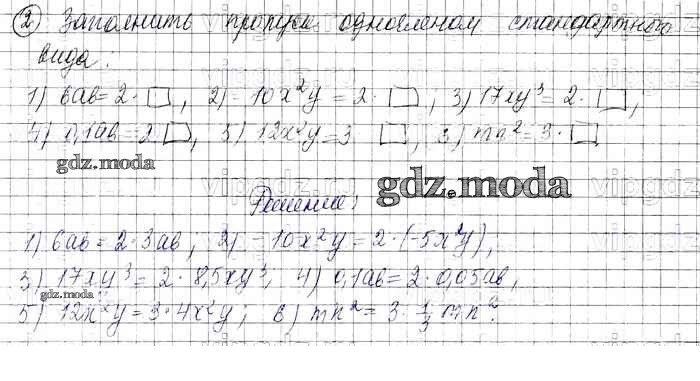 2 Заполнить пропуск одночленом стандартного
вида:
1) 6ab = 2 · □, 2) -10x²y = 2 · □, 3) 17xy³ = 2 · □,
4) 0,1ab = 2 □, 5) 12x²y = 3 □, 6) mn² = 3 · □
gdz.moda
gdz.moda
Решение:
1) 6ab = 2 · 3ab; 2) -10x²y = 2 · (-5x²y),
3) 17xy³ = 2 · 8,5xy³, 4) 0,1ab = 2 · 0,05ab,
gdz.moda
5) 12x²y = 3 · 4x²y; 6) mn² = 3 · 1/3 mn².